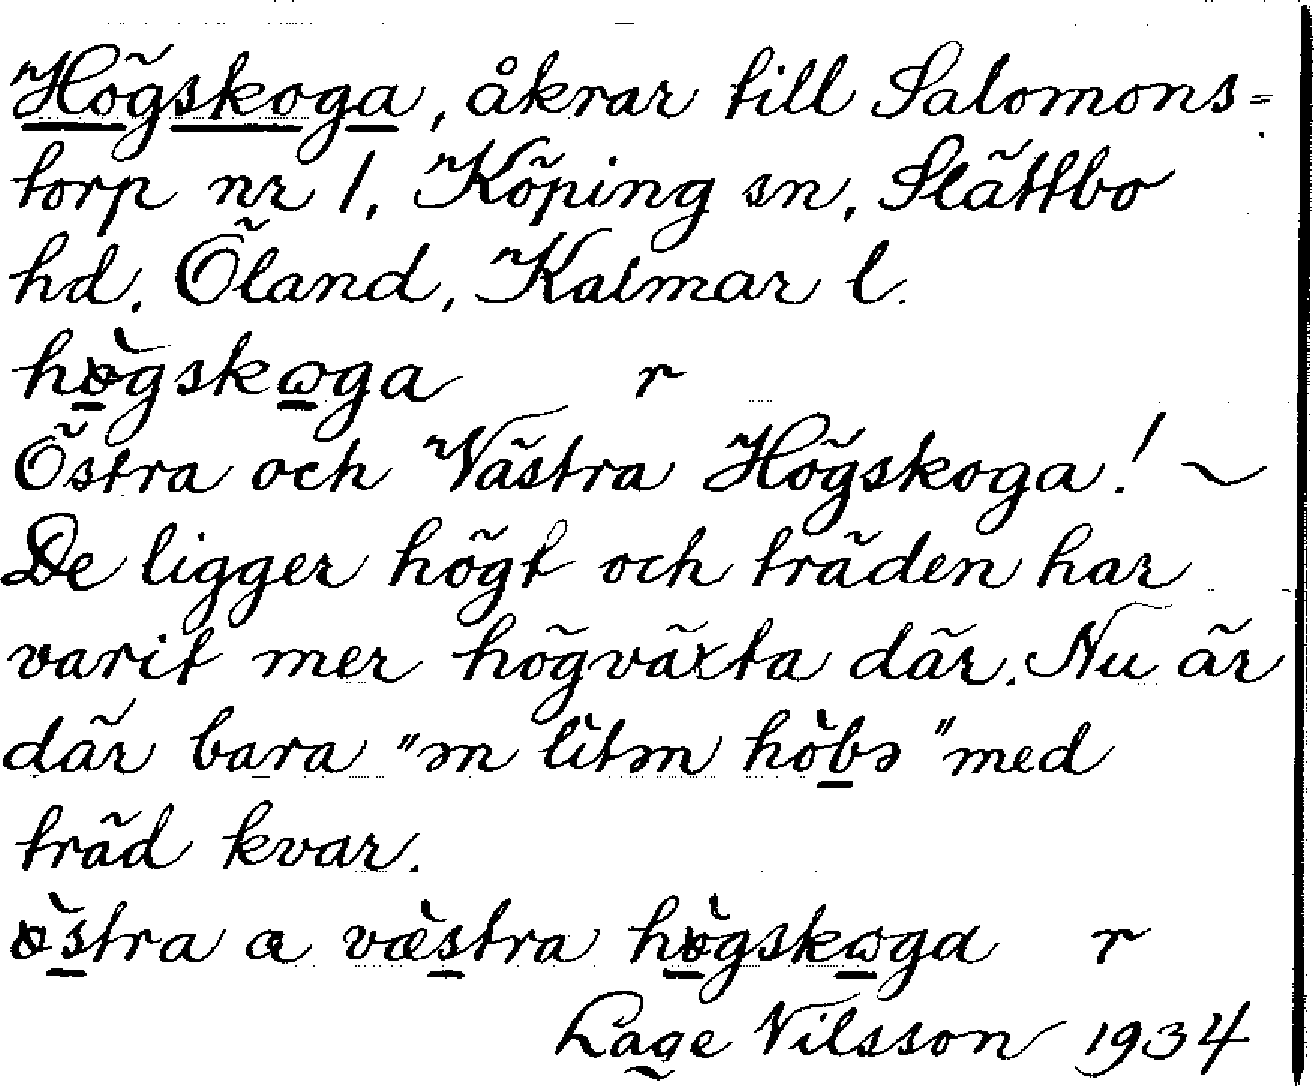 Högskoga, åkrar till Salomons=
torp nr 1, Köping sn, Slättbo
hd. Öland, Kalmar l.
hø̀gskωga r
Östra och Västra Högskoga! ~
De ligger högt och träden har
varit mer högväxta där. Nu är
där bara "ən lìtən hòbə" med
träd kvar.
ø̀stra a væ̀stra hø̀gskωga r
Lage Nilsson 1934